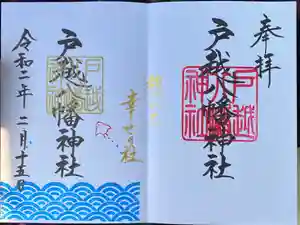 奉拝
戸越八幡神社
戸越
神社
幸せの社
戸越八幡神社
戸越
令和二年二月十五日